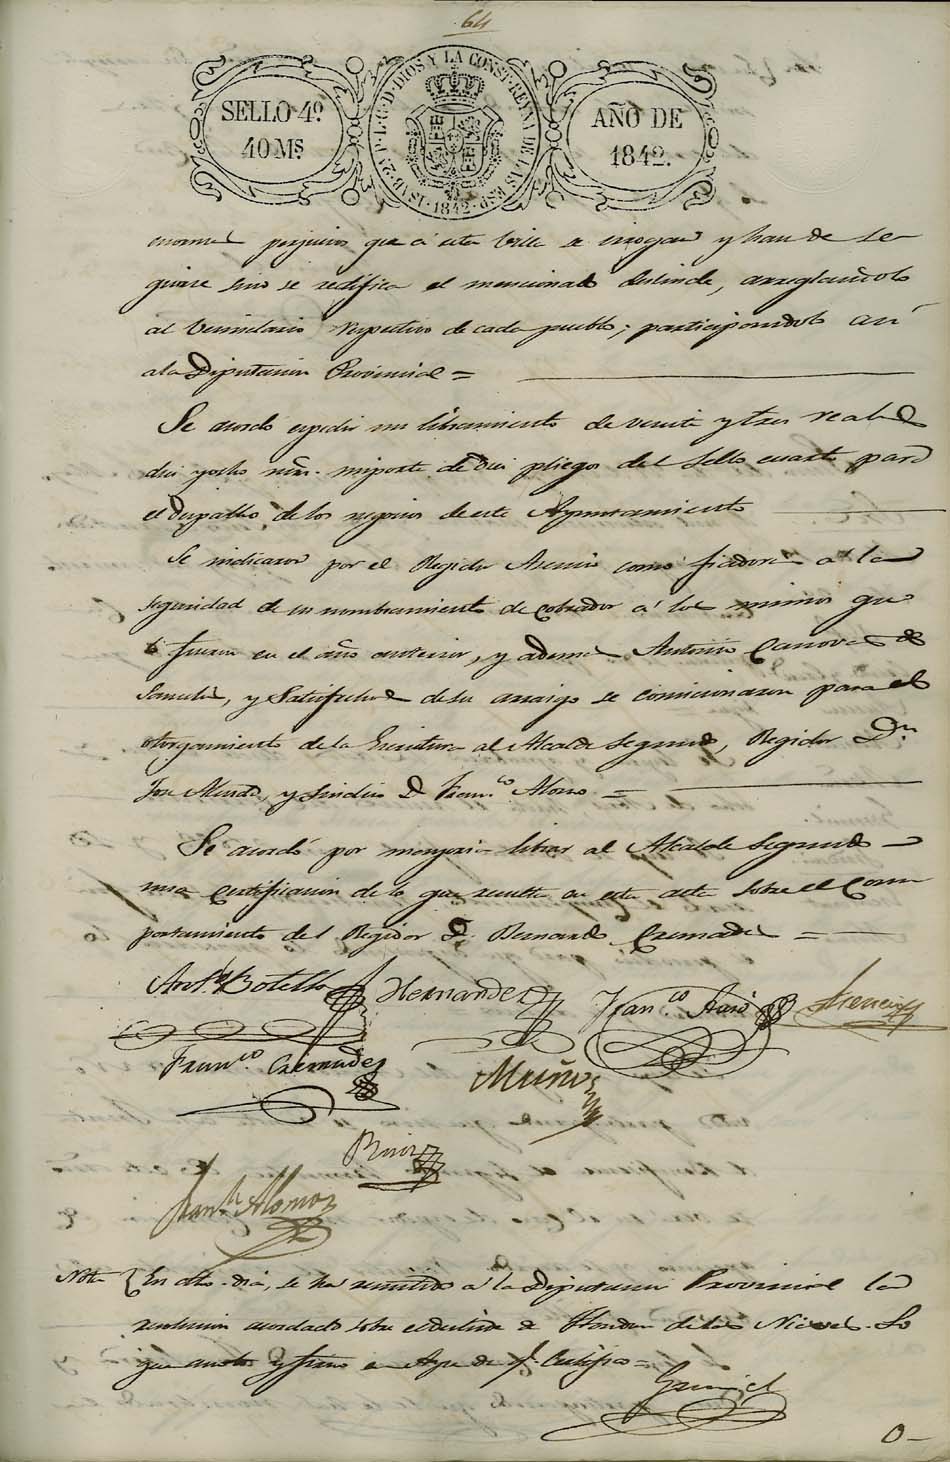 64
SELLO 4º
40 Ms
ISAB. 2ª P. L. G. D. DIOS Y LA CONST. REYNA DE LAS ESP. 1842
AÑO DE
1842.
perjuicios que á esta Villa se irrogan y han de se-
guirse sino se redifica el mencionado deslinde, arreglandolo
al Vecindario respectivo de cada pueblo; participandolo asi
a la Diputacion Provincial =
Se acordó espedir un libramiento de veinte y tres reales
diez y ocho mrs. importe de diez pliegos del Sello cuarto para
el despacho de los negocios de este Ayuntamiento
Se indicaron por el Regidor Asencio como fiadores a la
seguridad de su nombramiento de Cobrador a los mismos que
lo fueron en el año anterior, y ademas Antonio Canovas de
y Satisfechos de su arraigo se comisionaron para el
otorgamiento de la Escritura al Alcalde Segundo, Regidor Dn.
Jose y Sindico D. Franco. Alonso =
Se acordó por mayoria librar al Alcalde Segundo
una Certificacion de lo que resulta en esta acta sobre el Com-
portamiento del Regidor D. Bernardo Cremades =
Anto. Botella
Hernandez
Franco.
Asencio
Franco. Cremades
Muñoz
Ruiz
Alonso
Nota
En dho. dia, se ha remitido a la Diputacion Provincial la
acordado sobre el deslinde de Hondon de las Nieves. Lo
que anoto y firmo en Aspe de q. Certifico =